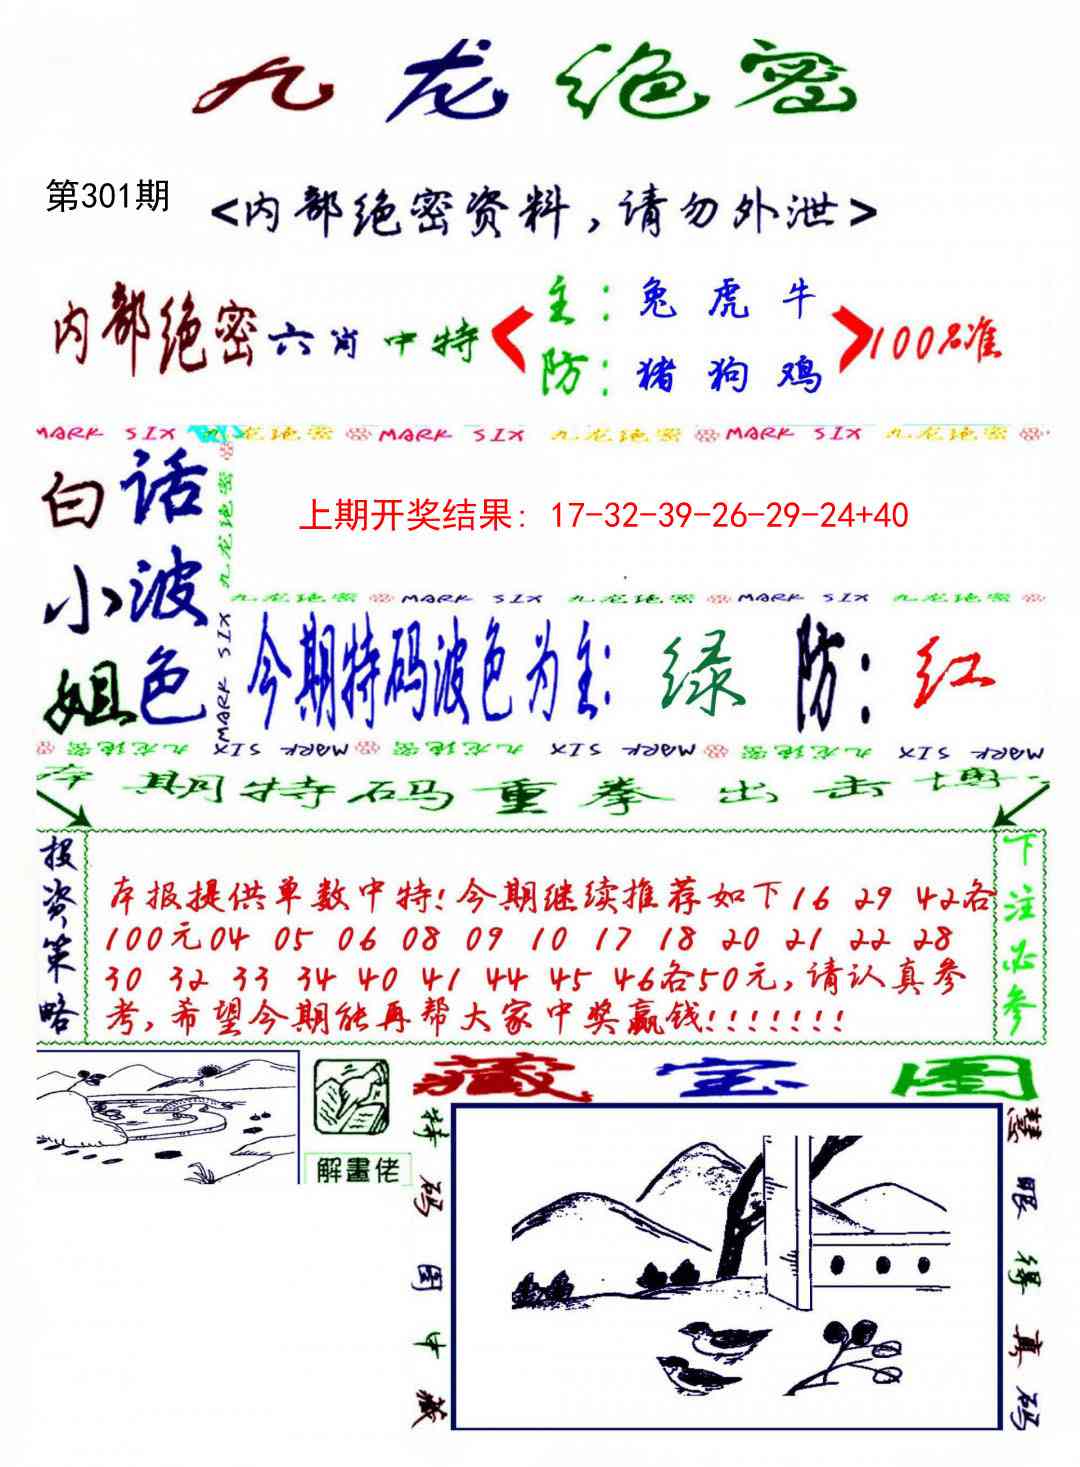 九龙绝密
第301期
<内部绝密资料,请勿外泄>
内部绝密六肖中特
主:兔虎牛
防:猪狗鸡
100%准
MARK SIX 九龙绝密 MARK SIX 九龙绝密 MARK SIX 九龙绝密
白小姐
话波色
九龙绝密
MARK SIX
上期开奖结果: 17-32-39-26-29-24+40
九龙绝密 MARK SIX 九龙绝密 MARK SIX 九龙绝密
今期特码波色为主:绿 防:红
九龙绝密 MARK SIX 九龙绝密 MARK SIX 九龙绝密 MARK SIX
本期特码重拳出击博
投资策略
本报提供单数中特!今期继续推荐如下16 29 42各
100元04 05 06 08 09 10 17 18 20 21 22 28
30 32 33 34 40 41 44 45 46各50元,请认真参
考,希望今期能再帮大家中奖赢钱!!!!!!!
下注必参
解畫佬
藏宝图
特码图中藏
慧眼得真码